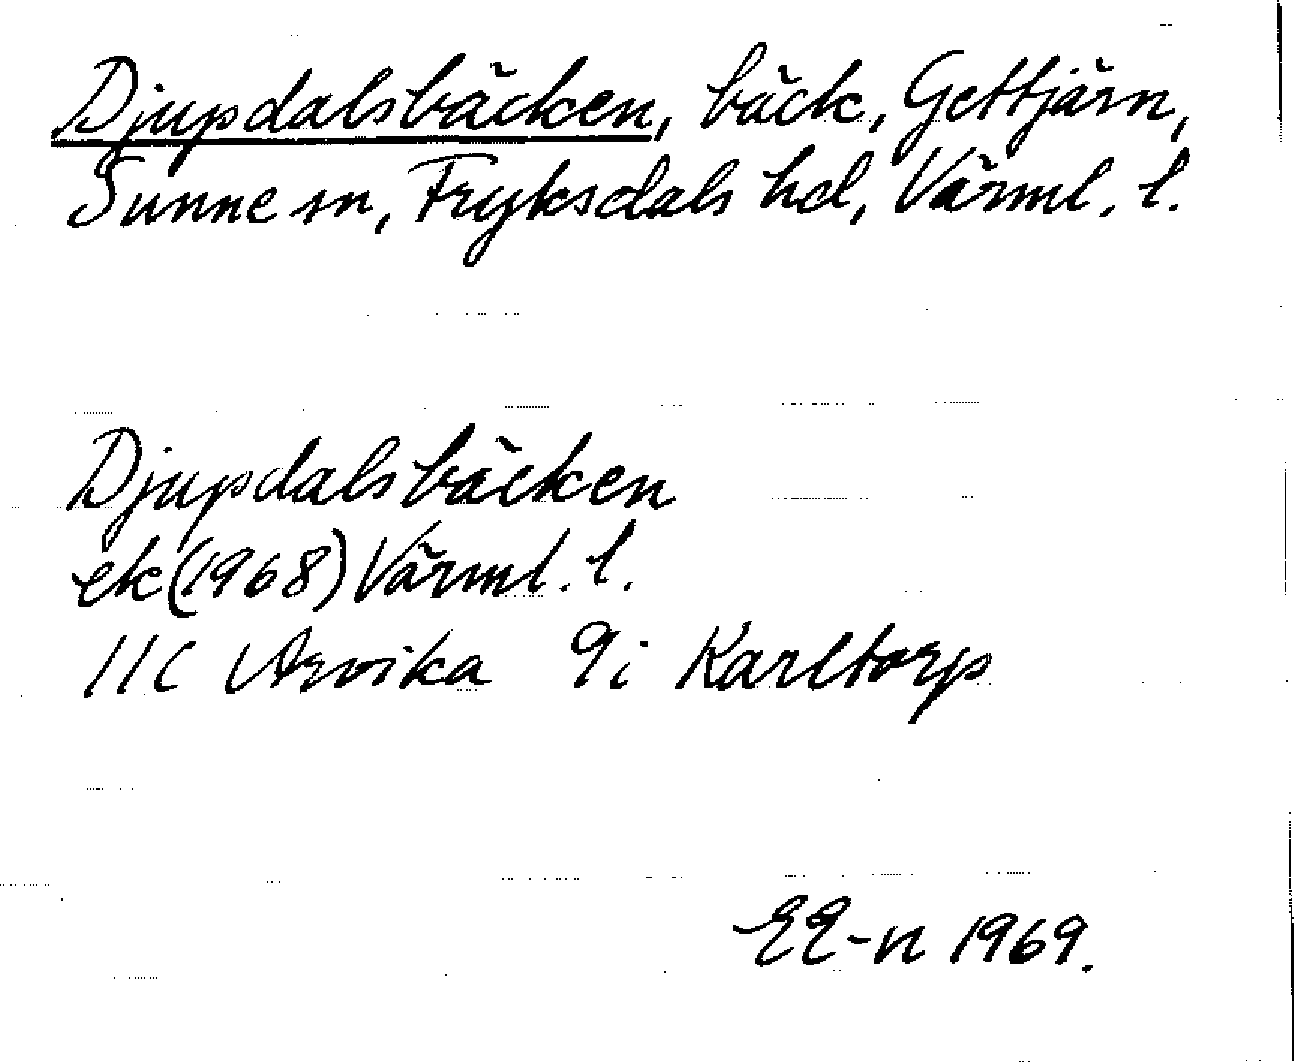 Djupdalsbäcken, bäck, Gettjärn,
Sunne sn, Fryksdals hd, Värml. l.
Djupdalsbäcken
ek (1968) Värml. l.
11C Arvika 9i Karltorp
EE-n 1969.